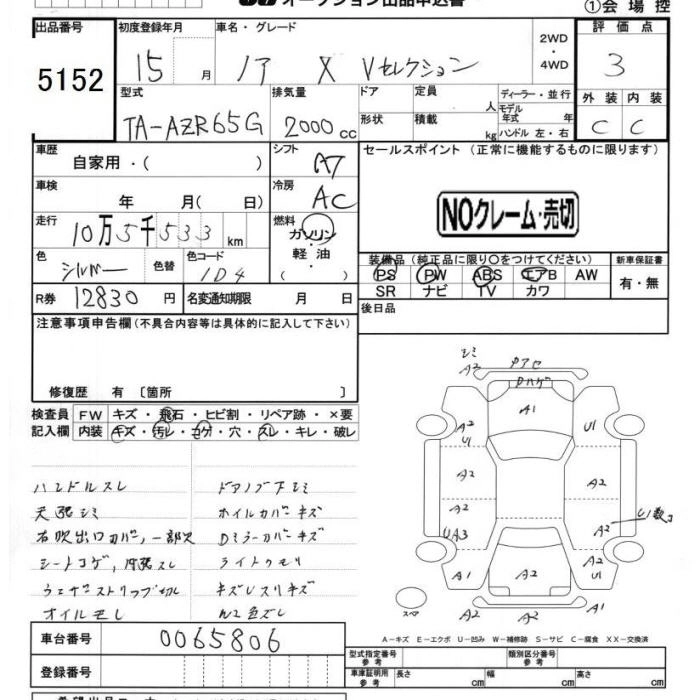 オークション出品申込書
①会場控
出品番号 初度登録年月 車名・グレード 2WD・4WD 評価点
5152 15 月 ノア X Vセレクション 3
型式 排気量 ドア 定員 人 ディーラー・並行 外装 内装
TA-AZR65G 2000 cc 形状 積載 kg モデル年式 年 ハンドル 左・右 C C
車歴 自家用・( ) シフト AT セールスポイント (正常に機能するものに限ります)
車検 年 月( 日) 冷房 AC
NOクレーム・売切
走行 10万5千533 km 燃料 ガソリン・軽油・( )
色 シルバー 色替 色コード 1D4
装備品(純正品に限り○をつけてください) 新車保証書
PS PW ABS エアB AW 有・無
SR ナビ TV カワ
R券 12830 円 名変通知期限 月 日
後日品
注意事項申告欄(不具合内容等は具体的に記入して下さい)
修復歴 有 〔箇所 〕
検査員 FW キズ・飛石・ヒビ割・リペア跡・×要
記入欄 内装 キズ・汚レ・コゲ・穴・スレ・キレ・破レ
ハンドルスレ
天張シミ
右吹出口カバー,一部欠
シートコゲ,内張スレ
ウェザーストリップ切レ
オイルモレ
ドアノブ下シミ
ホイルカバーキズ
Dミラーカバーキズ
ライトクモリ
キズUスリキズ
シミ
A2
A1
A2
U1
U1
A2
A2
A2
U1数コ
UA3
A2
A1
A2
A2
U1
A2
A1
スペア
A-キズ E-エクボ U-凹み W-補修跡 S-サビ C-腐食 XX-交換済
車台番号 0065806
登録番号
型式指定番号 参考 類別区分番号 参考
車庫証明用 参考 長さ cm 幅 cm 高さ cm